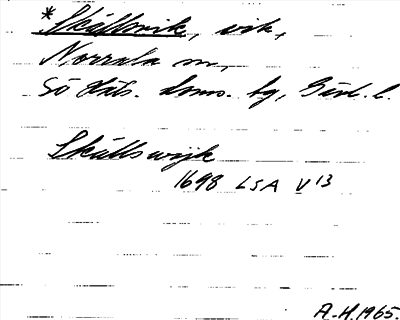 *Skällsvik, vik,
Norrala sn,
Sö Häls. doms. tg, Gävl. l.
Skällswijk
1698 LSA V 13
A.H. 1965.